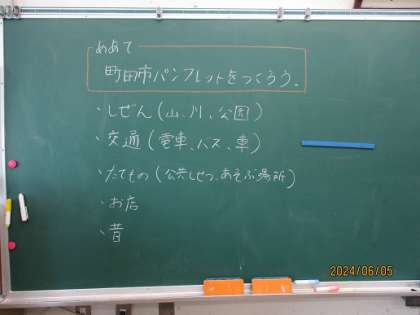 めあて
町田市パンフレットをつくろう。
・しぜん(山、川、公園)
・交通(電車、バス、車)
・たてもの(公共しせつ、あそぶ場所)
・お店
・昔
2024/06/05